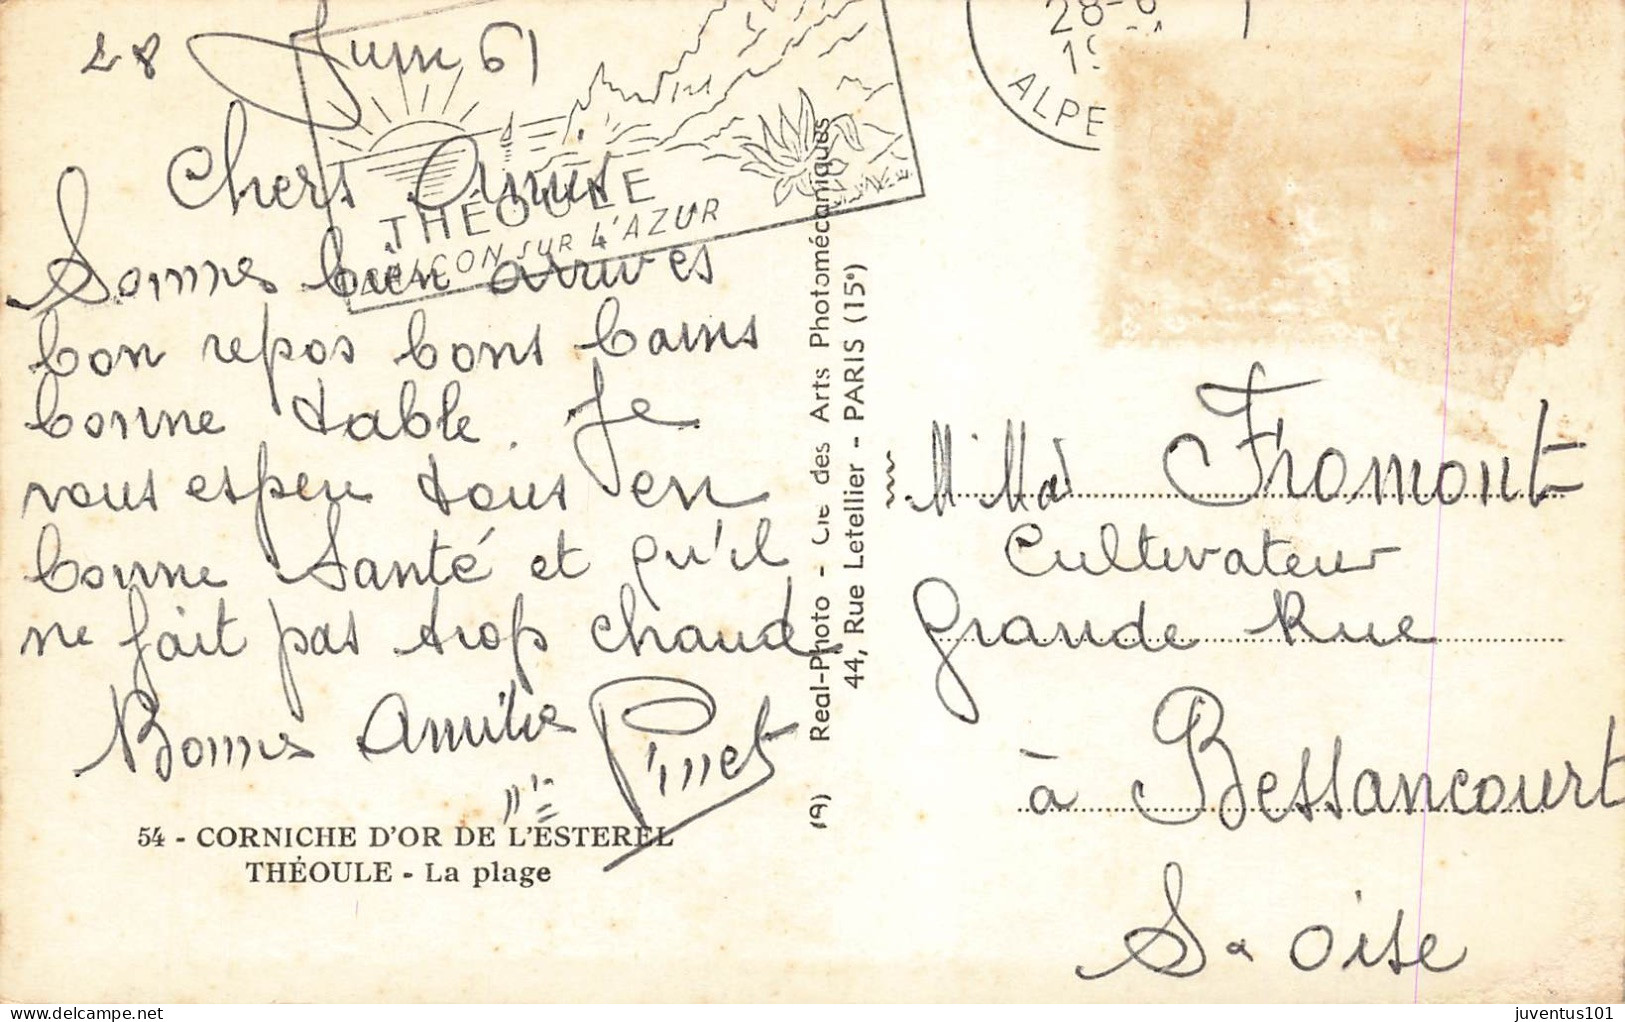 28 Juin 61
Chers Amis
Sommes bien arrives
bon repos bons bains
bonne table. Je
vous esper tous en
bonne Santé et qu'il
ne fait pas trop chaud
Bonnes Amities
Pinet
54 - CORNICHE D'OR DE L'ESTEREL
THÉOULE - La plage
THÉOULE
BALCON SUR L'AZUR
19) Real-Photo - Cie des Arts Photomécaniques
44, Rue Letellier - PARIS (15e)
28-6
19
ALPE
M. Mad Fromont
Cultivateur
Grande Rue
à Bessancourt
S & Oise
juventus101